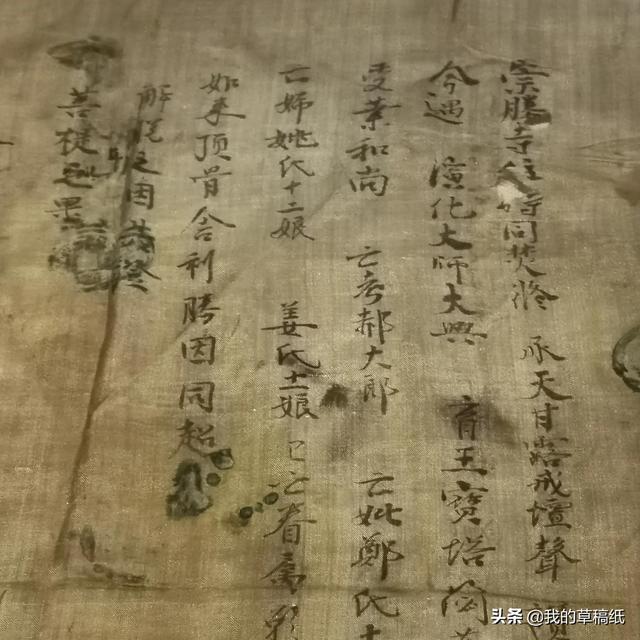 崇勝寺住持同焚修 承天甘露戒壇聲
今遇 演化大師大興 育王寶塔
受業和尚 亡考郝大郎 亡妣鄭氏十
亡婦姚氏十二娘 姜氏十一娘 已亡眷屬
如来頂骨舍利勝因同超
解脱之因共登
菩提之果
头条 @我的草稿纸